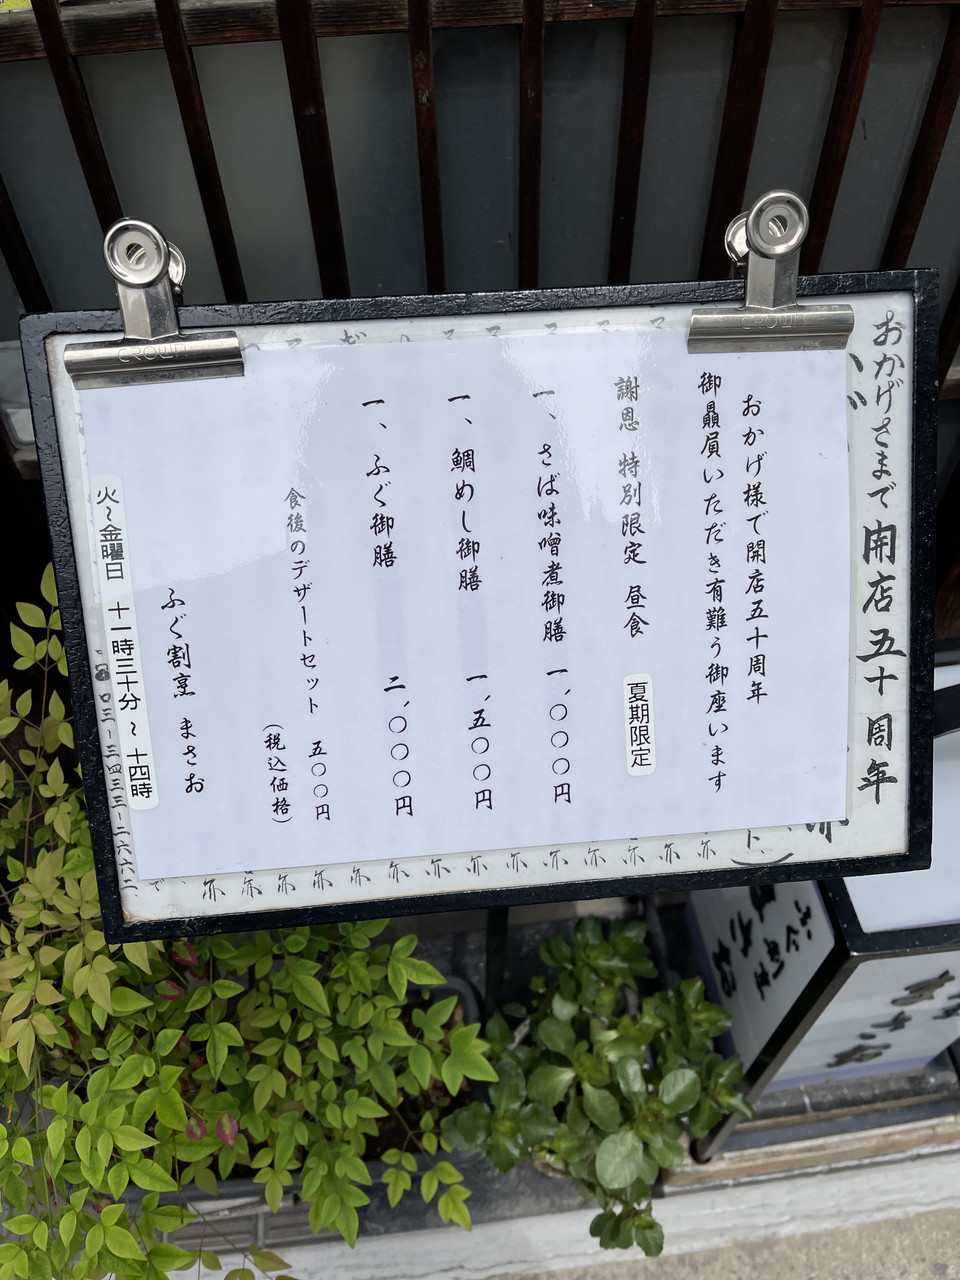 おかげさまで開店五十周年
おかげ様で開店五十周年
御贔屓いただき有難う御座います
謝恩 特別限定 昼食 夏期限定
一、さば味噌煮御膳 一、〇〇〇円
一、鯛めし御膳 一、五〇〇円
一、ふぐ御膳 二、〇〇〇円
食後のデザートセット 五〇〇円
(税込価格)
ふぐ割烹 まさお
火〜金曜日 十一時三十分 〜 十四時
CROWN
CROWN